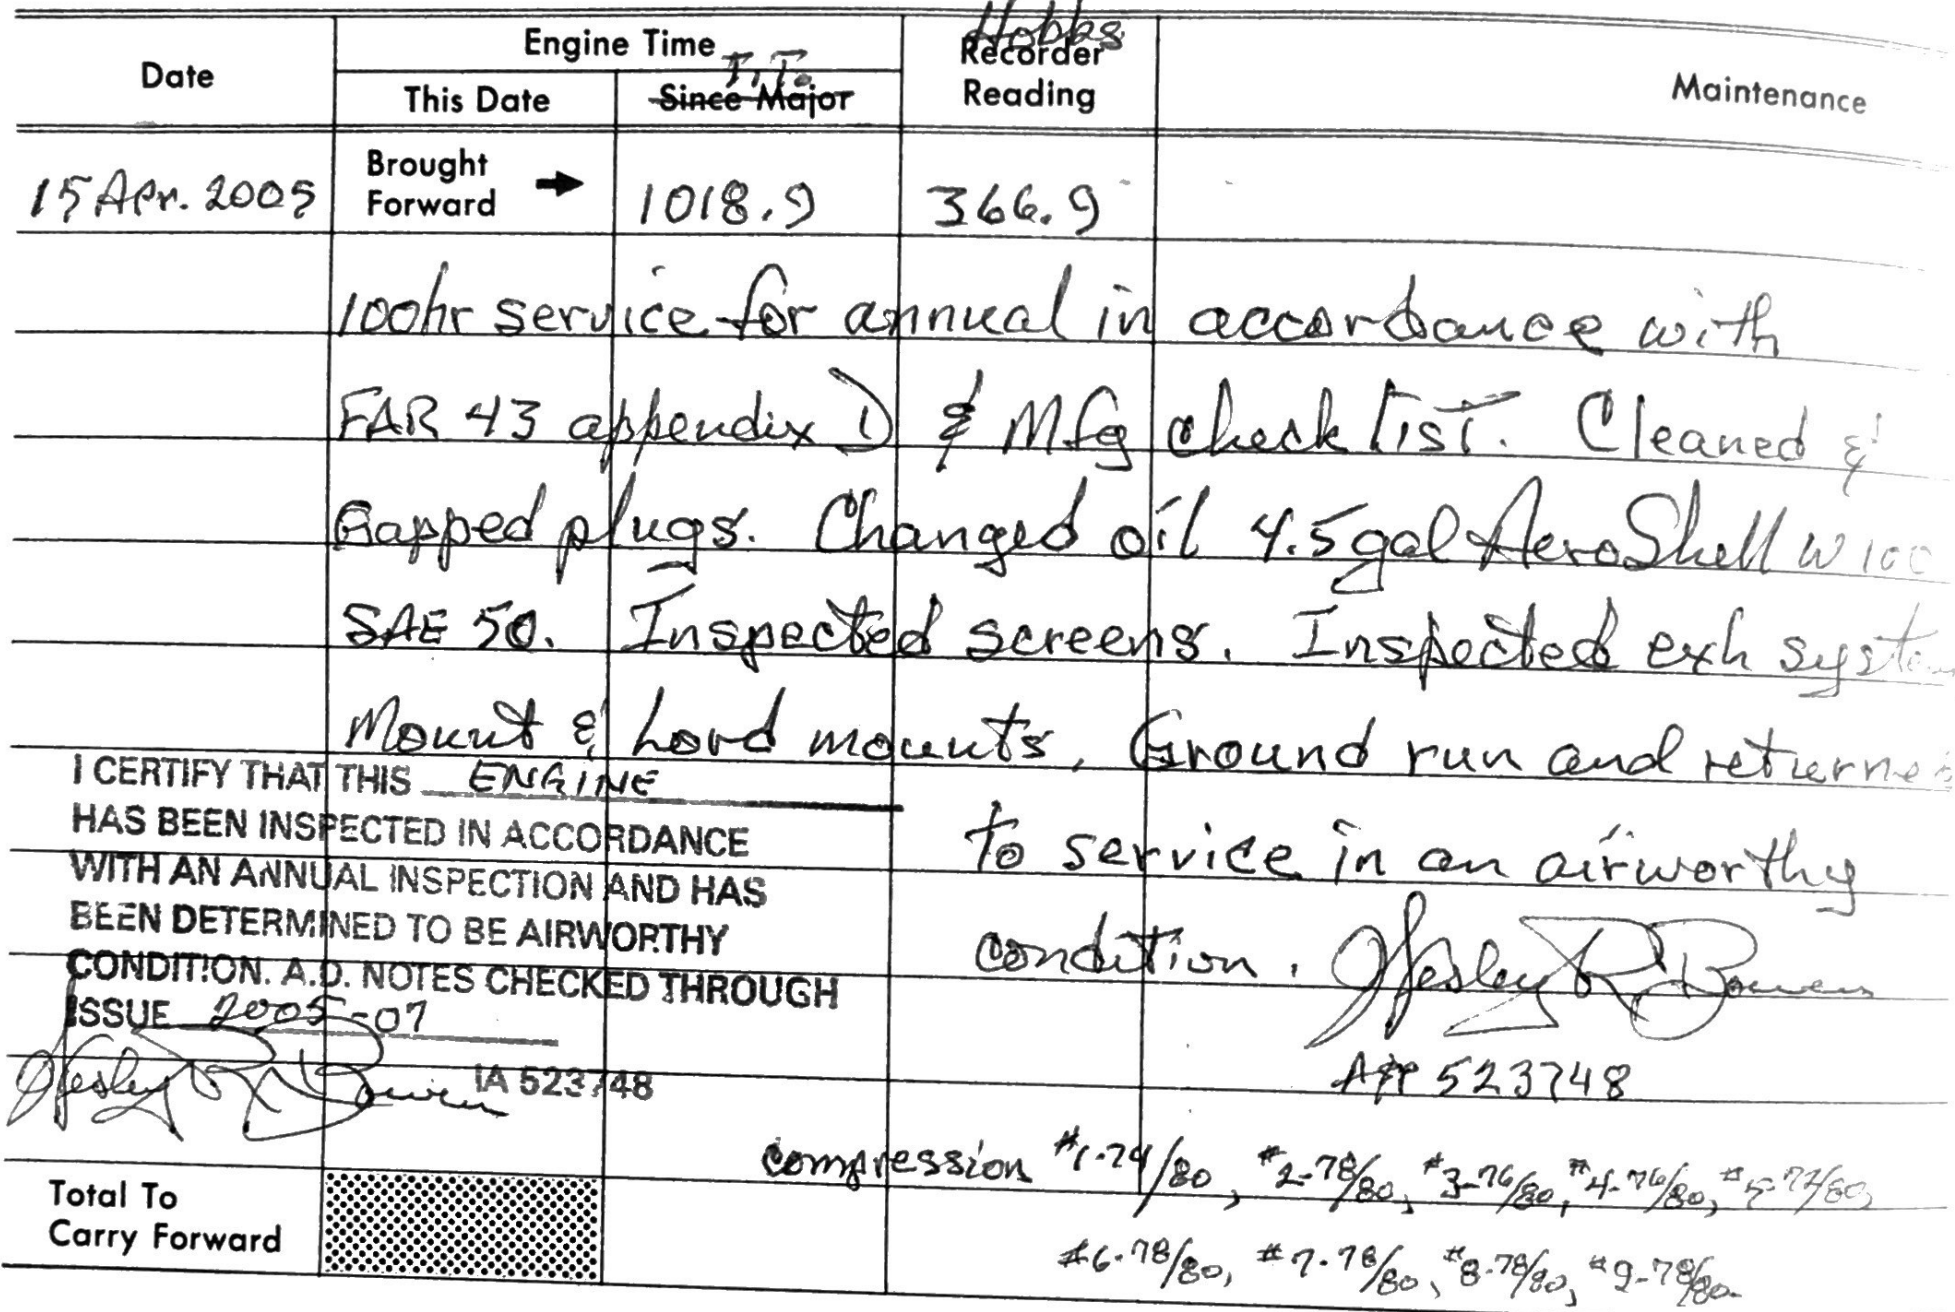 Date
Engine Time
T.T.
This Date
Since Major
Hobbs
Recorder
Reading
Maintenance
15 Apr. 2005
Brought
Forward
1018.9
366.9
100hr service for annual in accordance with
FAR 43 appendix D & Mfg check list. Cleaned &
Gapped plugs. Changed oil 4.5gal AeroShell W100
SAE 50. Inspected screens. Inspected exh system
Mount & Lord mounts, Ground run and returned
to service in an airworthy
condition. Wesley R Bowen
A&P 523748
I CERTIFY THAT THIS ENGINE
HAS BEEN INSPECTED IN ACCORDANCE
WITH AN ANNUAL INSPECTION AND HAS
BEEN DETERMINED TO BE AIRWORTHY
CONDITION. A.D. NOTES CHECKED THROUGH
ISSUE 2005-07
Wesley R Bowen IA 523748
compression #1-74/80, #2-78/80, #3-76/80, #4-76/80, #5-
#6-78/80, #7-78/80, #8-78/80, #9-78/80.
Total To
Carry Forward